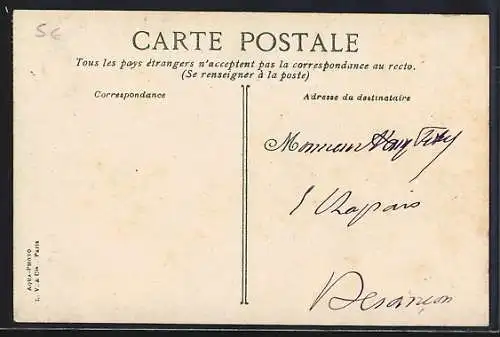 5€
CARTE POSTALE
Tous les pays étrangers n'acceptent pas la correspondance au recto.
(Se renseigner à la poste)
Correspondance
Adresse du destinataire
Monsieur
Chapais
Besançon
AQUA-PHOTO
L. V. & Cie Paris